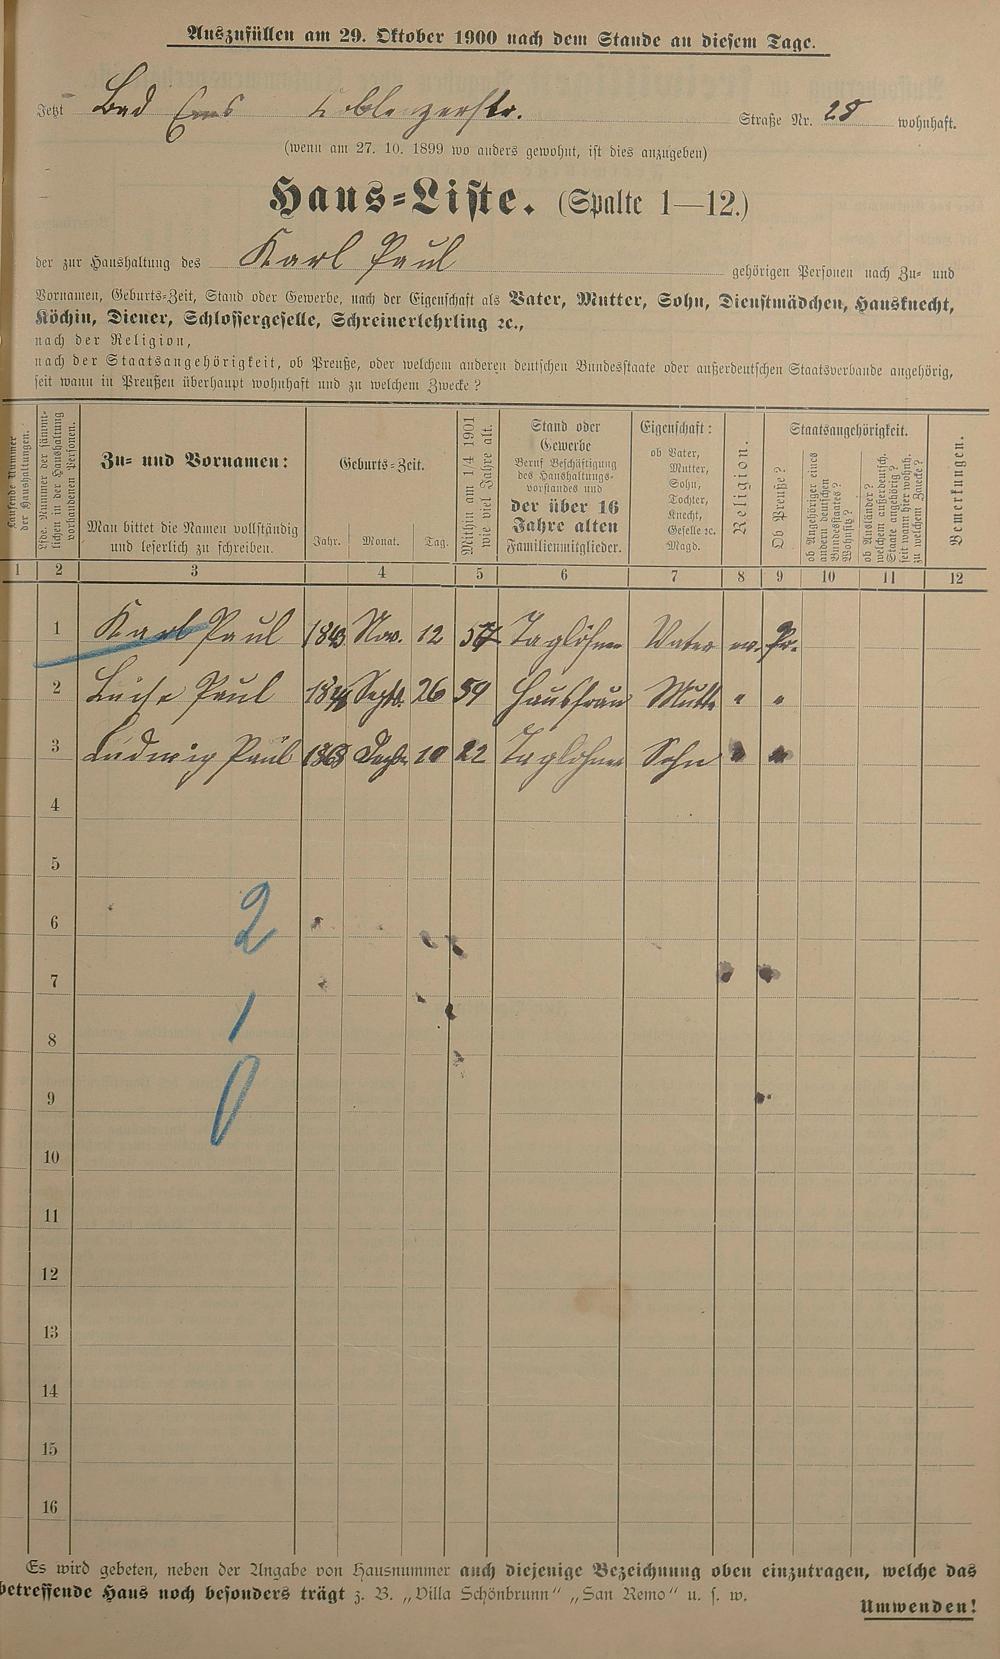 Auszufüllen am 29. Oktober 1900 nach dem Stande an diesem Tage.
Jetzt Bad Ems Coblenzerstr. Straße Nr. 28 wohnhaft.
(wenn am 27. 10. 1899 wo anders gewohnt, ist dies anzugeben)
Haus-Liste. (Spalte 1—12.)
der zur Haushaltung des Karl Paul gehörigen Personen nach Zu- und
Vornamen, Geburts-Zeit, Stand oder Gewerbe, nach der Eigenschaft als Vater, Mutter, Sohn, Dienstmädchen, Hausknecht,
Köchin, Diener, Schlossergeselle, Schreinerlehrling ꝛc.,
nach der Religion,
nach der Staatsangehörigkeit, ob Preuße, oder welchem anderen deutschen Bundesstaate oder außerdeutschen Staatsverbande angehörig,
seit wann in Preußen überhaupt wohnhaft und zu welchem Zwecke?
Laufende Nummer der Haushaltungen.
Lfde. Nummer der sämmtlichen in der Haushaltung vorhandenen Personen.
Zu- und Vornamen:
Man bittet die Namen vollständig
und leserlich zu schreiben.
Geburts-Zeit.
Jahr. Monat. Tag.
Mithin am 1/4 1901
wie viel Jahre alt.
Stand oder
Gewerbe
Beruf Beschäftigung
des Haushaltungs-
vorstandes und
der über 16
Jahre alten
Familienmitglieder.
Eigenschaft:
ob Vater,
Mutter,
Sohn,
Tochter,
Knecht,
Geselle ꝛc.
Magd.
Religion.
Staatsangehörigkeit.
Ob Preuße?
ob Angehöriger eines
andern deutschen
Bundesstaates?
Wohnsitz?
ob Ausländer?
welchem außerdeutsch.
Staate angehörig?
seit wann hier wohnh.
zu welchem Zwecke?
Bemerkungen.
1 2 3 4 5 6 7 8 9 10 11 12
1 Karl Paul 1843 Nov. 12 57 Taglöhner Vater ev. Pr.
2 Luise Paul Septb. 26 59 Hausfrau Mutter " "
3 Ludwig Paul 1868 Dezbr. 10 22 Taglöhner Sohn " "
4
5
6
2
7
1
8
0
9
10
11
12
13
14
15
16
Es wird gebeten, neben der Angabe von Hausnummer auch diejenige Bezeichnung oben einzutragen, welche das
betreffende Haus noch besonders trägt z. B. „Villa Schönbrunn“ „San Remo“ u. s. w.
Umwenden!